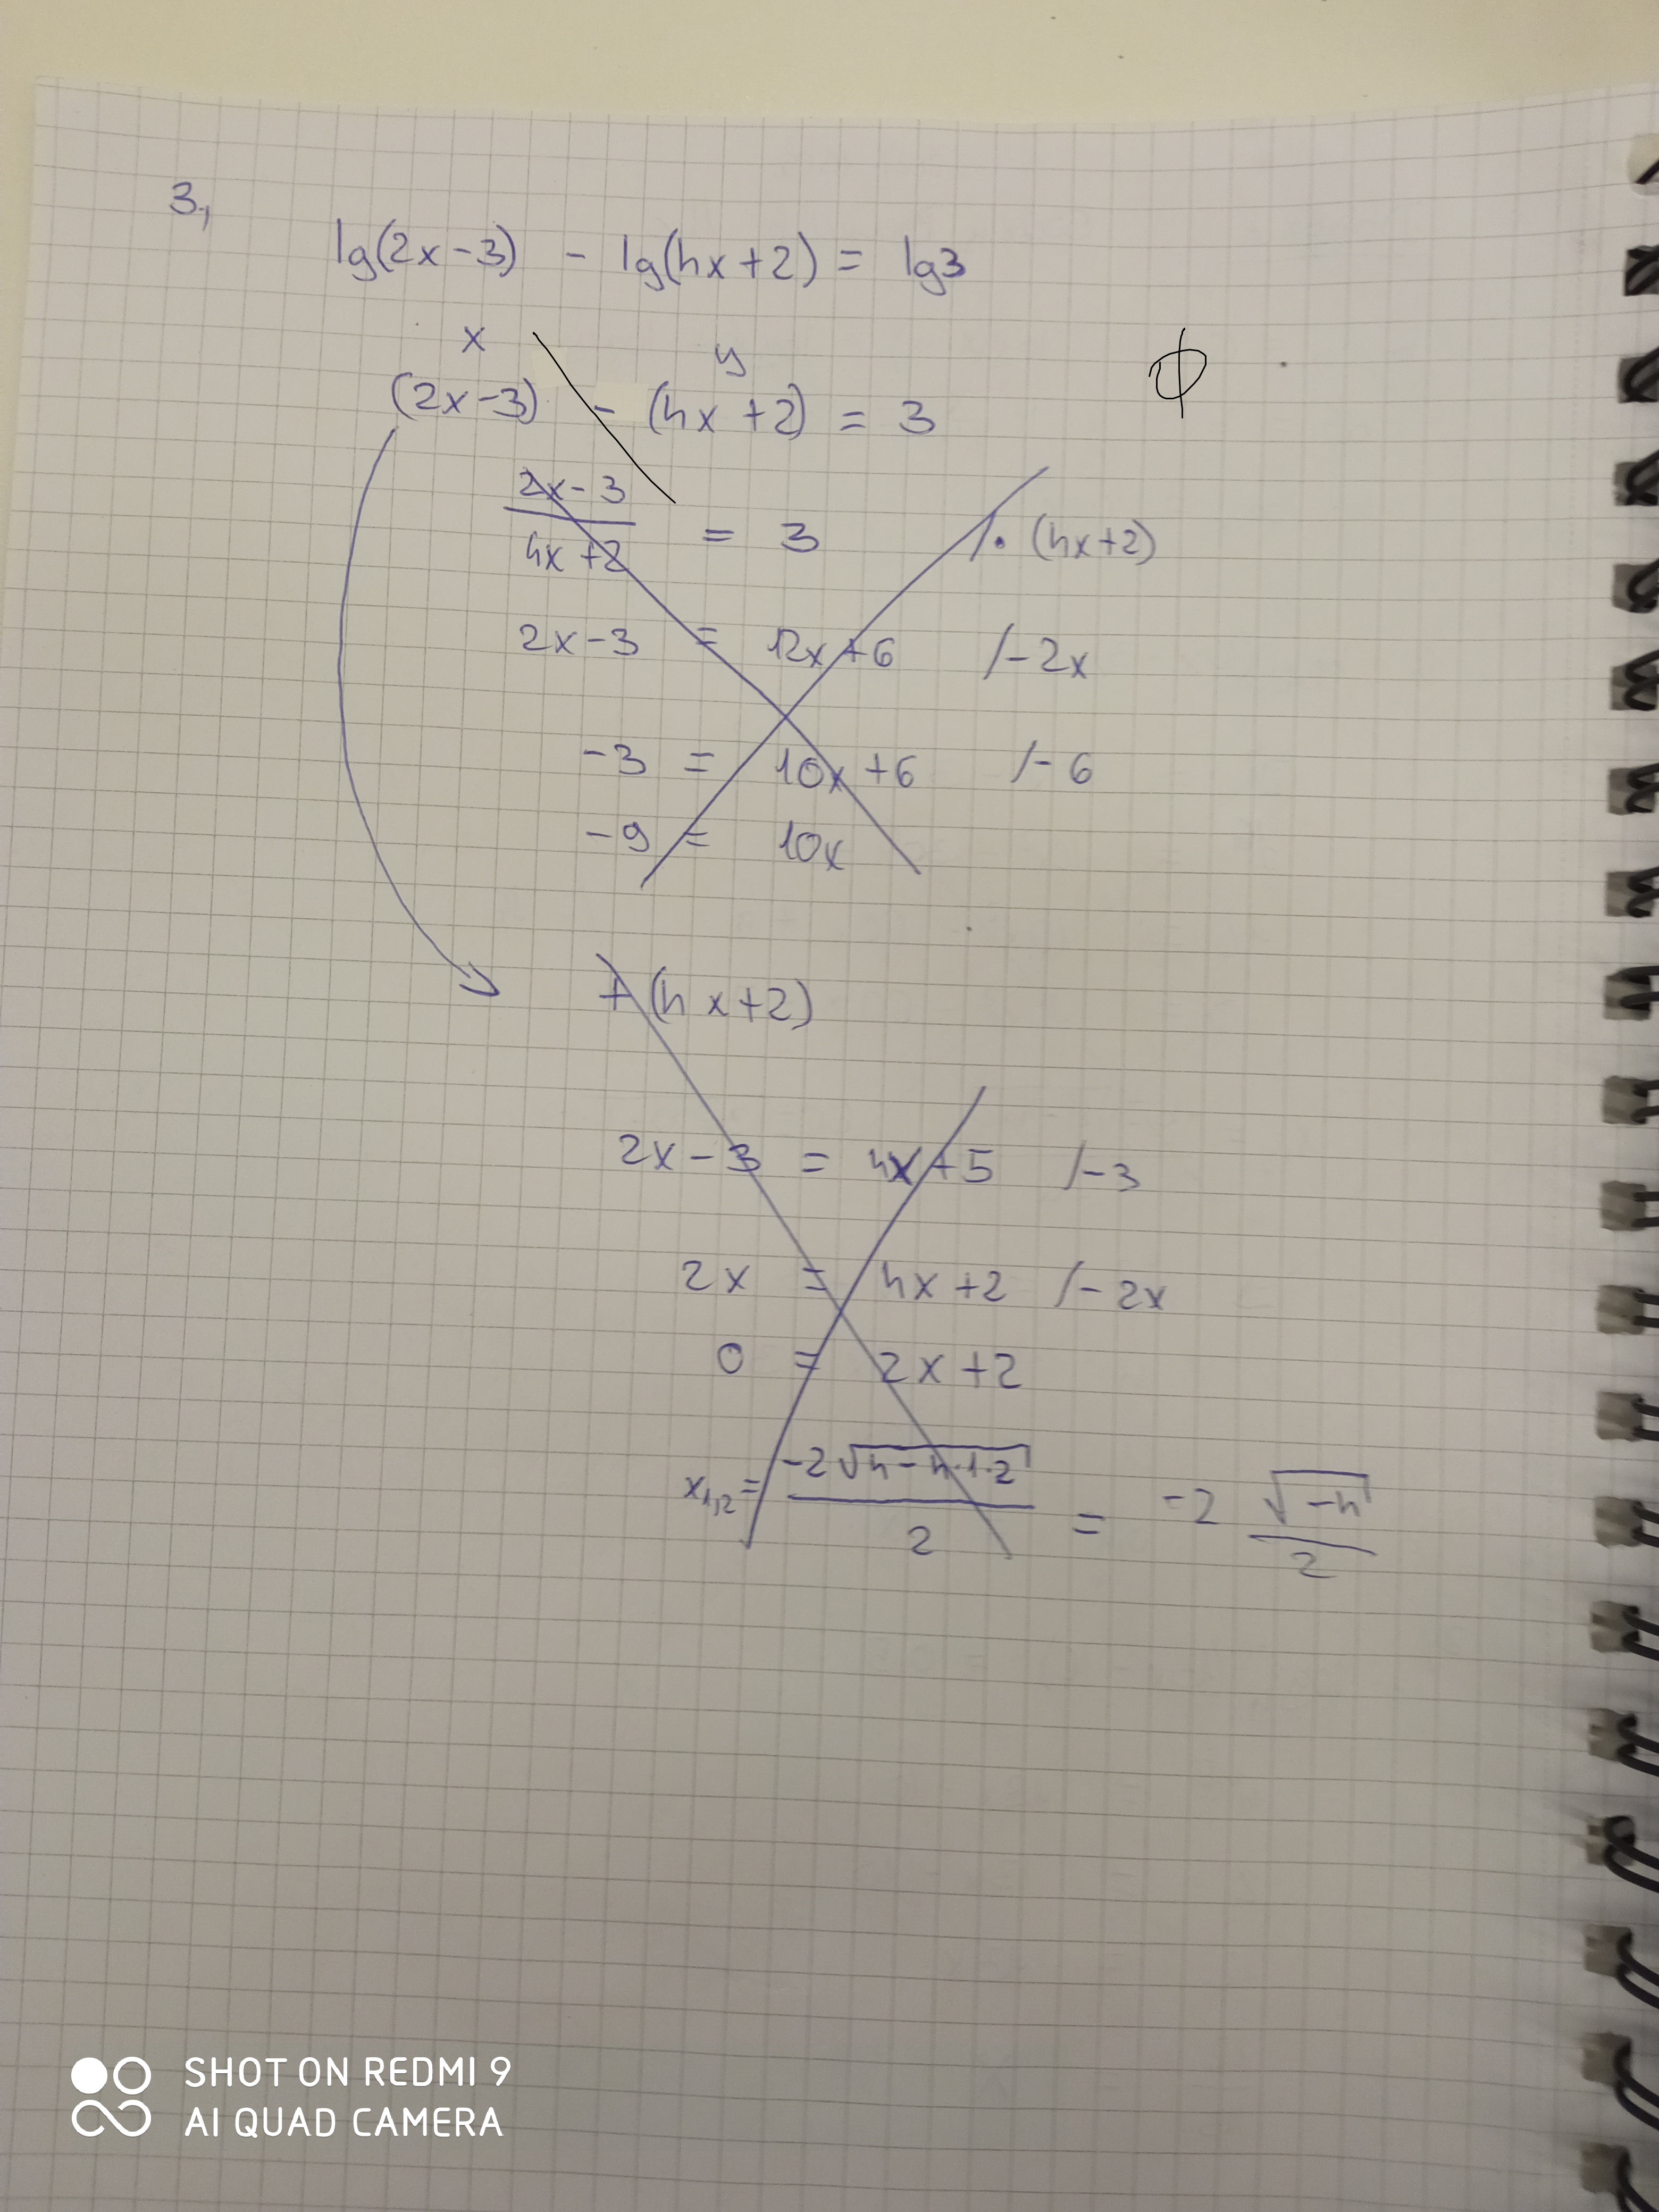 3,
lg(2x-3) - lg(4x+2) = lg3
x y
(2x-3) - (4x+2) = 3
ϕ
2x-3
4x+2
= 3 /· (4x+2)
2x-3 = 12x+6 /-2x
-3 = 10x+6 /-6
-9 = 10x
+(4x+2)
2x-3 = 4x+5 /-3
2x = 4x+2 /-2x
0 = 2x+2
x1,2= -2√4-4·1·2 / 2 = -2 √-4 / 2
SHOT ON REDMI 9
AI QUAD CAMERA